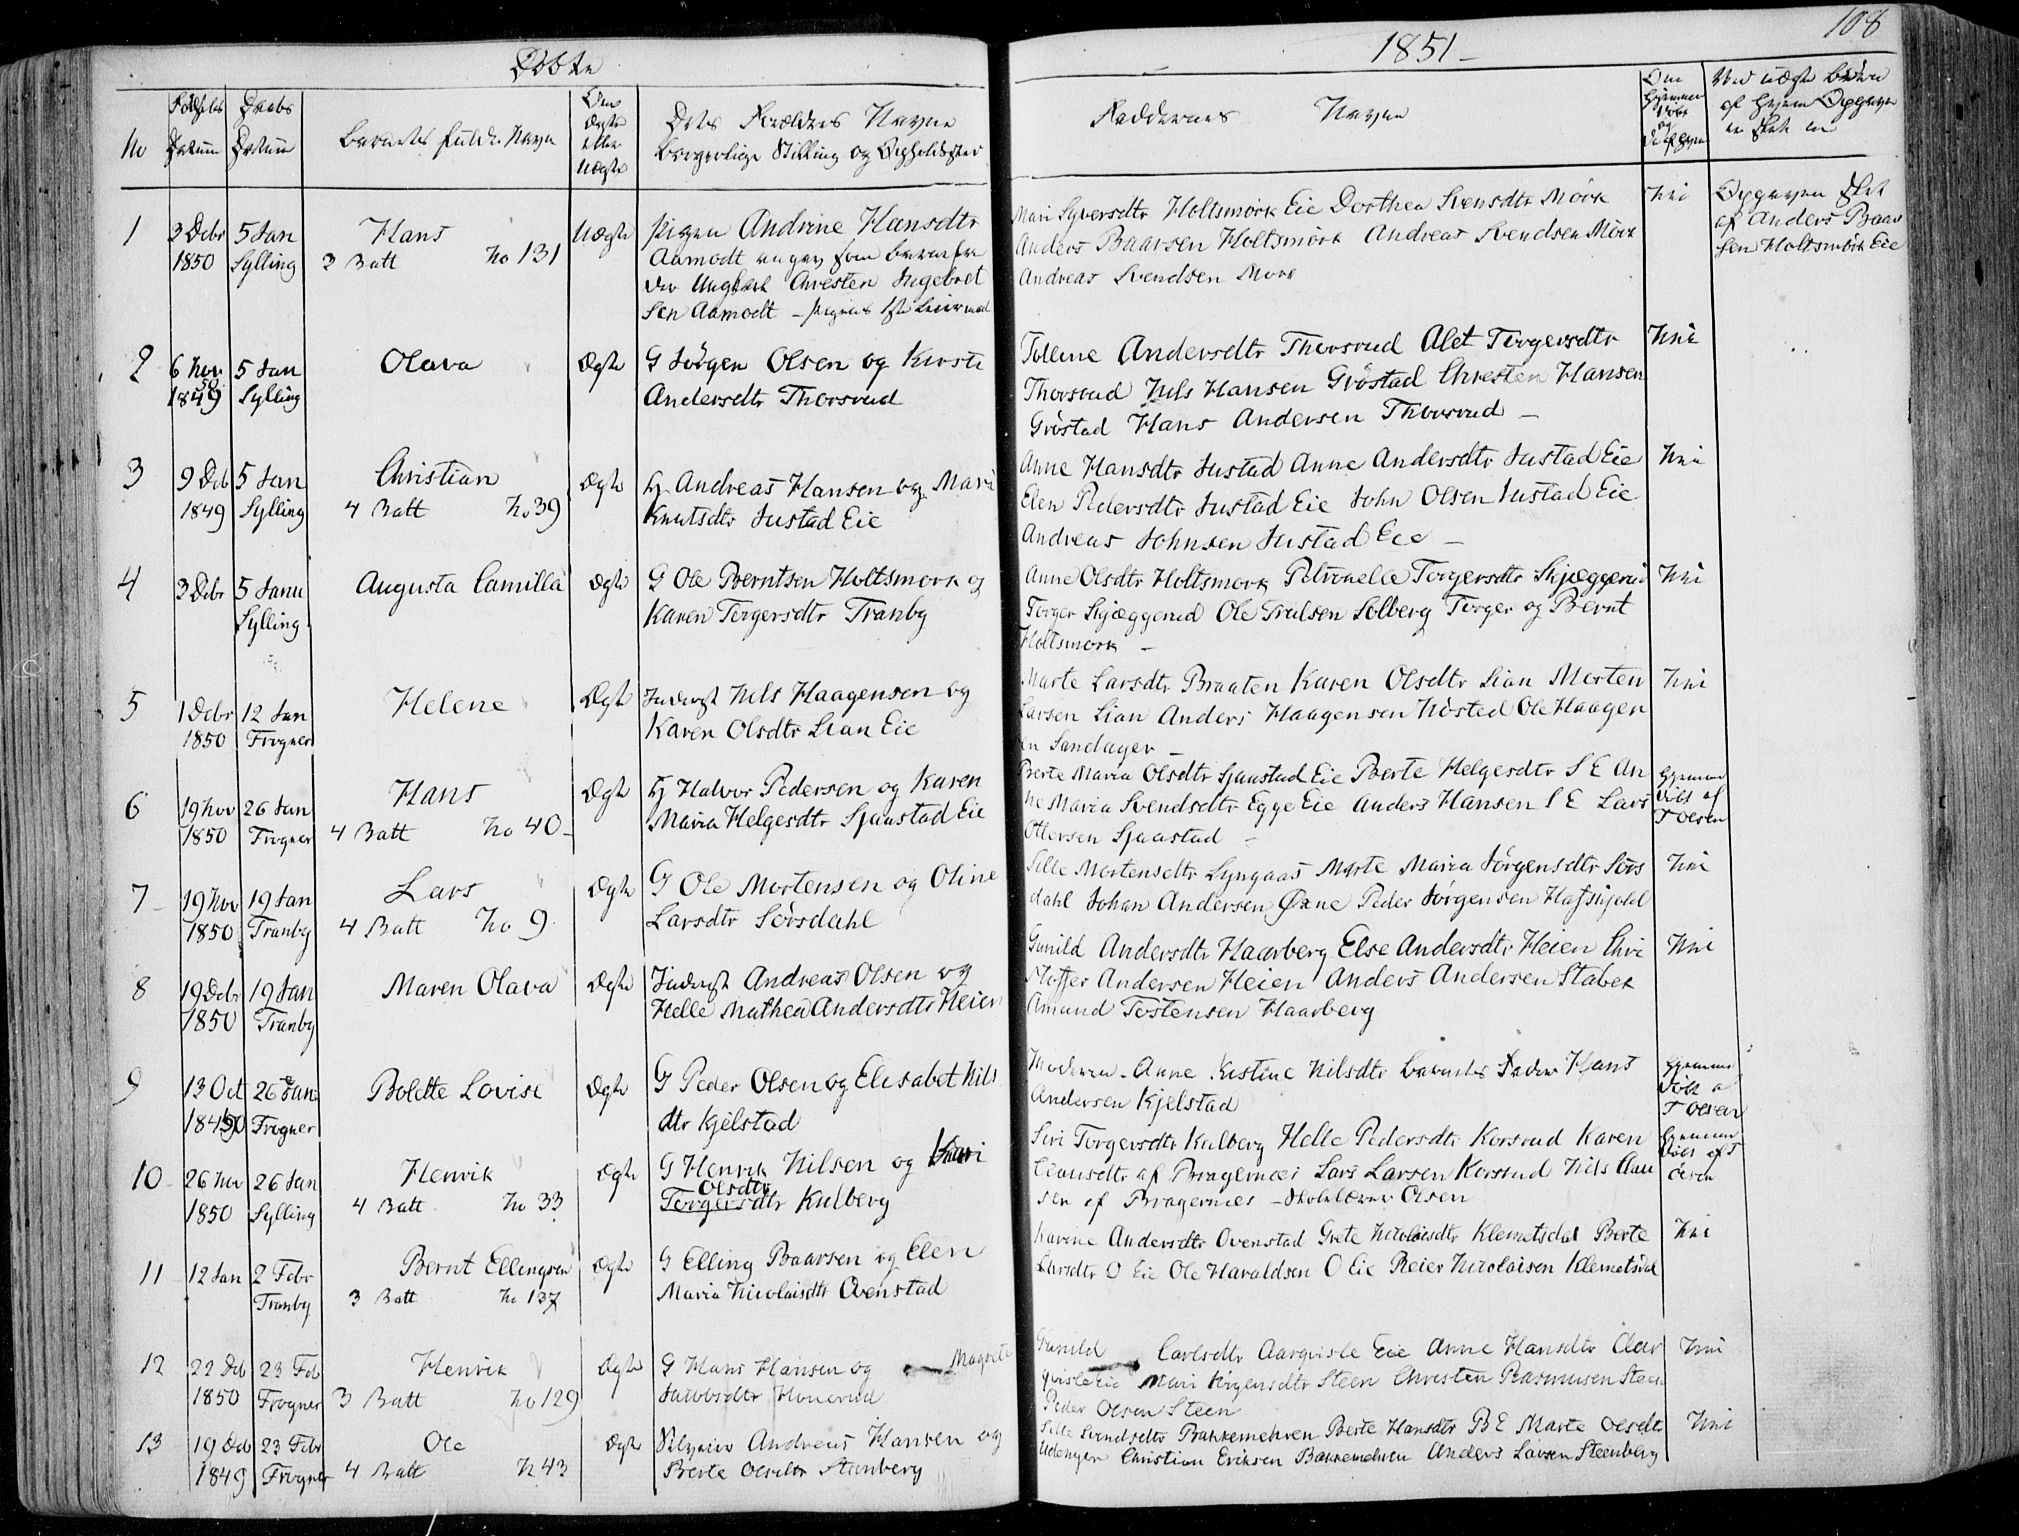 Døbte
1851
108
No
Fødsels Datum
Daabs Datum
Barnets fulde Navn
Om Ægte eller Uægte
Dets Forældres Navne
Borgerlige Stilling og Opholdssted
Faddernes Navne
1
3 Debr 1850
5 Jan Sylling
Hans
3 Batt No 131
Uægte
Pigen Andrine Hansdtr
Aamodt
Ungkarl Christen Ingebret
sen Aamodt
Mari Syversdtr Holtsmørk Eie Dorthea Svensdtr Mørk
Anders Baarsen Holtsmörk Andreas Svendsen Mörk
Andreas Svendsen Mørk
Nei
Opgaven sket
af Anders Baar
sen Holtsmörk Eie
2
6 Nov 1849 50
5 Jan Sylling
Olava
Ægte
G Jörgen Olsen og Kirsti
Andersdtr Thorsrud
Tollene Andersdtr Thorsrud Alet Torgersdtr
Thorsrud Nils Hansen Gröstad Christen Hansen
Gröstad Hans Andersen Thorsrud
Nei
3
9 Deb 1849
5 Jan Sylling
Christian
4 Batt No 39
Ægte
H Andreas Hansen og Mari
Knutsdtr Justad Eie
Anne Hansdtr Justad Anne Andersdtr Justad Eie
Elen Pedersdtr Justad Eie John Olsen Justad Eie
Andreas Johnsen Justad Eie
Nei
4
3 Debr
5 Janu Sylling
Augusta Camilla
Ægte
G Ole Berntsen Holtsmork og
Karen Torgersdtr Tranby
Anne Olsdtr Holtsmork Petronelle Torgersdtr Skjæggerud
Torger Skjæggerud Ole Trulsen Solberg Torger og Bernt
Holtsmork
Nei
5
1 Debr 1850
12 Jan Frogner
Helene
Ægte
Inderst Nils Haagensen og
Karen Olsdtr Lian Eie
Marte Larsdtr Braaten Karen Olsdtr Lian Morten
Larsen Lian Anders Haagensen Nösted Ole Haagen
sen Sandager
Nei
6
19 Nov 1850
26 Jan Frogner
Hans
4 Batt No 40
Ægte
H Halvor Pedersen og Karen
Maria Helgesdtr Sjaastad Eie
Berte Maria Olsdtr Sjaastad Eie Berte Helgesdtr S E An
ne Maria Svendsdtr Egge Eie Anders Hansen S E Lars
Ottersen Sjaastad
Hjemme
döbt af
T Olsen
7
19 Nov 1850
19 Jan Tranby
Lars
4 Batt No 9
Ægte
G Ole Mortensen og Oline
Larsdtr Sörsdahl
Sille Mortensdtr Lyngaas Marte Maria Jörgensdtr Sörs
dahl Johan Andersen Øxne Peder Jörgensen Hafskjold
Nei
8
19 Debr 1850
19 Jan Tranby
Maren Olava
Ægte
Inderst Andreas Olsen og
Helle Mathea Andersdtr Heien
Gunild Andersdtr Haarberg Else Andersdtr Heien Chri
stoffer Andersen Heien Anders Andersen Stabek
Amund Tostensen Haarberg
Nei
9
13 Oct 1850
26 Jan Frogner
Bolette Lovise
Ægte
G Peder Olsen og Elisabet Nils
dtr Kjelstad
Moderen Anne Kristine Nilsdtr Barnets Fader Hans
Andersen Kjelstad
Hjemme
döbt a
T Olsen
10
26 Nov 1850
26 Jan Sylling
Henrik
4 Batt No 33
Ægte
G Henrik Nilsen og Kari
Olsdtr
Torgersdtr Kulberg
Siri Torgersdtr Kulberg Helle Pedersdtr Korsrud Karen
Clausdtr af Bragernæs Lars Larsen Korsrud Nils Clau
sen af Bragernæs Skolelærer Olsen
Hjemme
döbt af
Olsen
11
12 Jan
2 Febr Tranby
Bernt Ellingsen
3 Batt No 137
Ægte
G Elling Baarsen og Elen
Maria Nicolaisdtr Ovenstad
Karine Andersdtr Ovenstad Grete Nicolaisdtr Klemetsdal Berte
Larsdtr O Eie Ole Haraldsen O Eie Reier Nicolaisen Klemetsdal
Nei
12
22 Deb 1850
23 Feb Frogner
Henrik
3 Batt No 129
Ægte
G Hans Hansen og Magrete
Jakobsdtr Honerud
Gunild Carlsdtr Aarqvisle Eie Anne Hansdtr Aar
qvisle Eie Mari Jörgensdtr Steen Christen Rasmussen Steen
Peder Olsen Steen
Nei
13
19 Deb 1849
23 Febr Frogner
Ole
4 Batt N 43
Ægte
Andreas Hansen og
Berte Olsdtr Stenberg
Sille Svendsdtr Bakkemehren Berte Hansdtr B E Marte Olsdtr
Udengen Christian Eriksen Bakkemehren Anders Larsen Steenberg
Nei